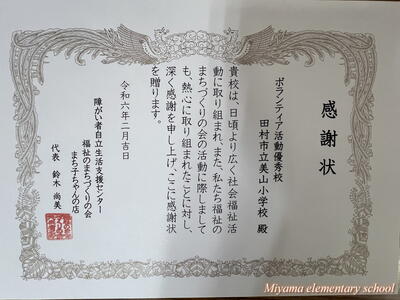 感謝状
ボランティア活動優秀校
田村市立美山小学校 殿
貴校は、日頃より広く社会福祉活
動に取り組まれ、また、私たち福祉の
まちづくりの会の活動に際しまして
も、熱心に取り組まれたことに対し、
深く感謝を申し上げ、ここに感謝状
を贈ります。
令和六年二月吉日
障がい者自立生活支援センター
福祉のまちづくりの会
まち子ちゃんの店
代表 鈴木 尚美
Miyama elementary school